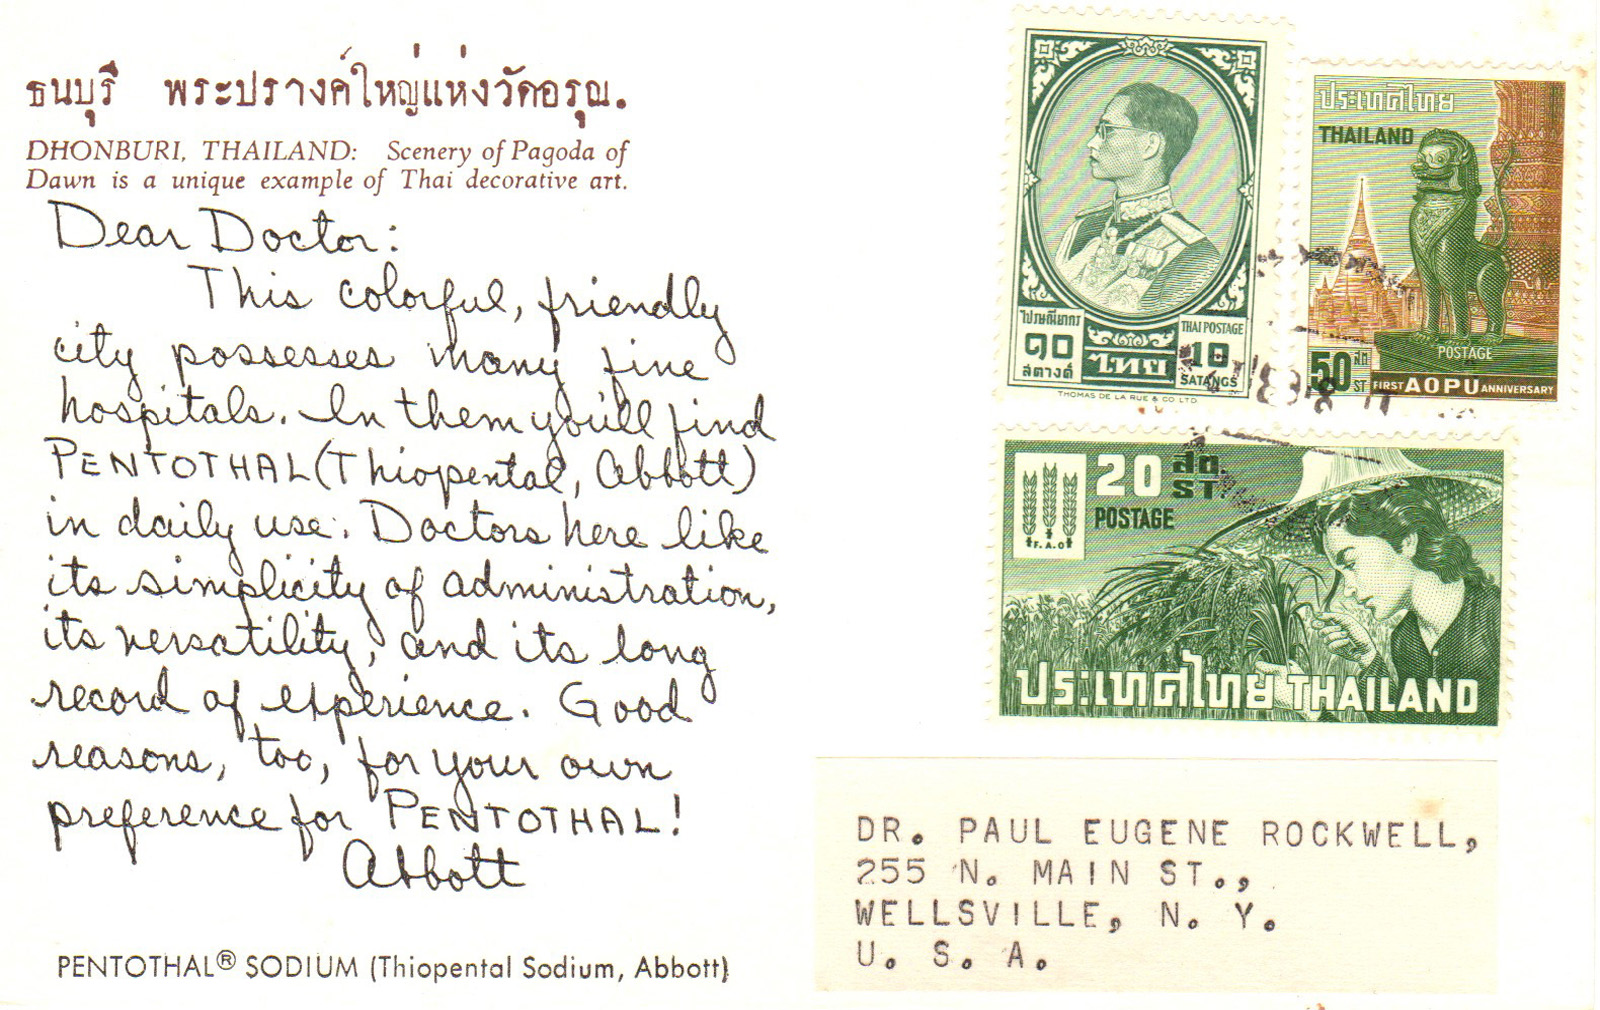 ธนบุรี พระปรางค์ใหญ่แห่งวัดอรุณ.
DHONBURI, THAILAND: Scenery of Pagoda of
Dawn is a unique example of Thai decorative art.
Dear Doctor:
This colorful, friendly
city possesses many fine
hospitals. In them you'll find
PENTOTHAL (Thiopental, Abbott)
in daily use. Doctors here like
its simplicity of administration,
its versatility, and its long
record of experience. Good
reasons, too, for your own
preference for PENTOTHAL!
Abbott
PENTOTHAL® SODIUM (Thiopental Sodium, Abbott)
ไปรษณียากร
THAI POSTAGE
๑๐
ไทย
10
สตางค์
SATANGS
THOMAS DE LA RUE & CO LTD
ประเทศไทย
THAILAND
POSTAGE
50 สต ST
FIRST AOPU ANNIVERSARY
20 สต. ST
POSTAGE
F.A.O
ประเทศไทย THAILAND
DR. PAUL EUGENE ROCKWELL,
255 N. MAIN ST.,
WELLSVILLE, N. Y.
U. S. A.